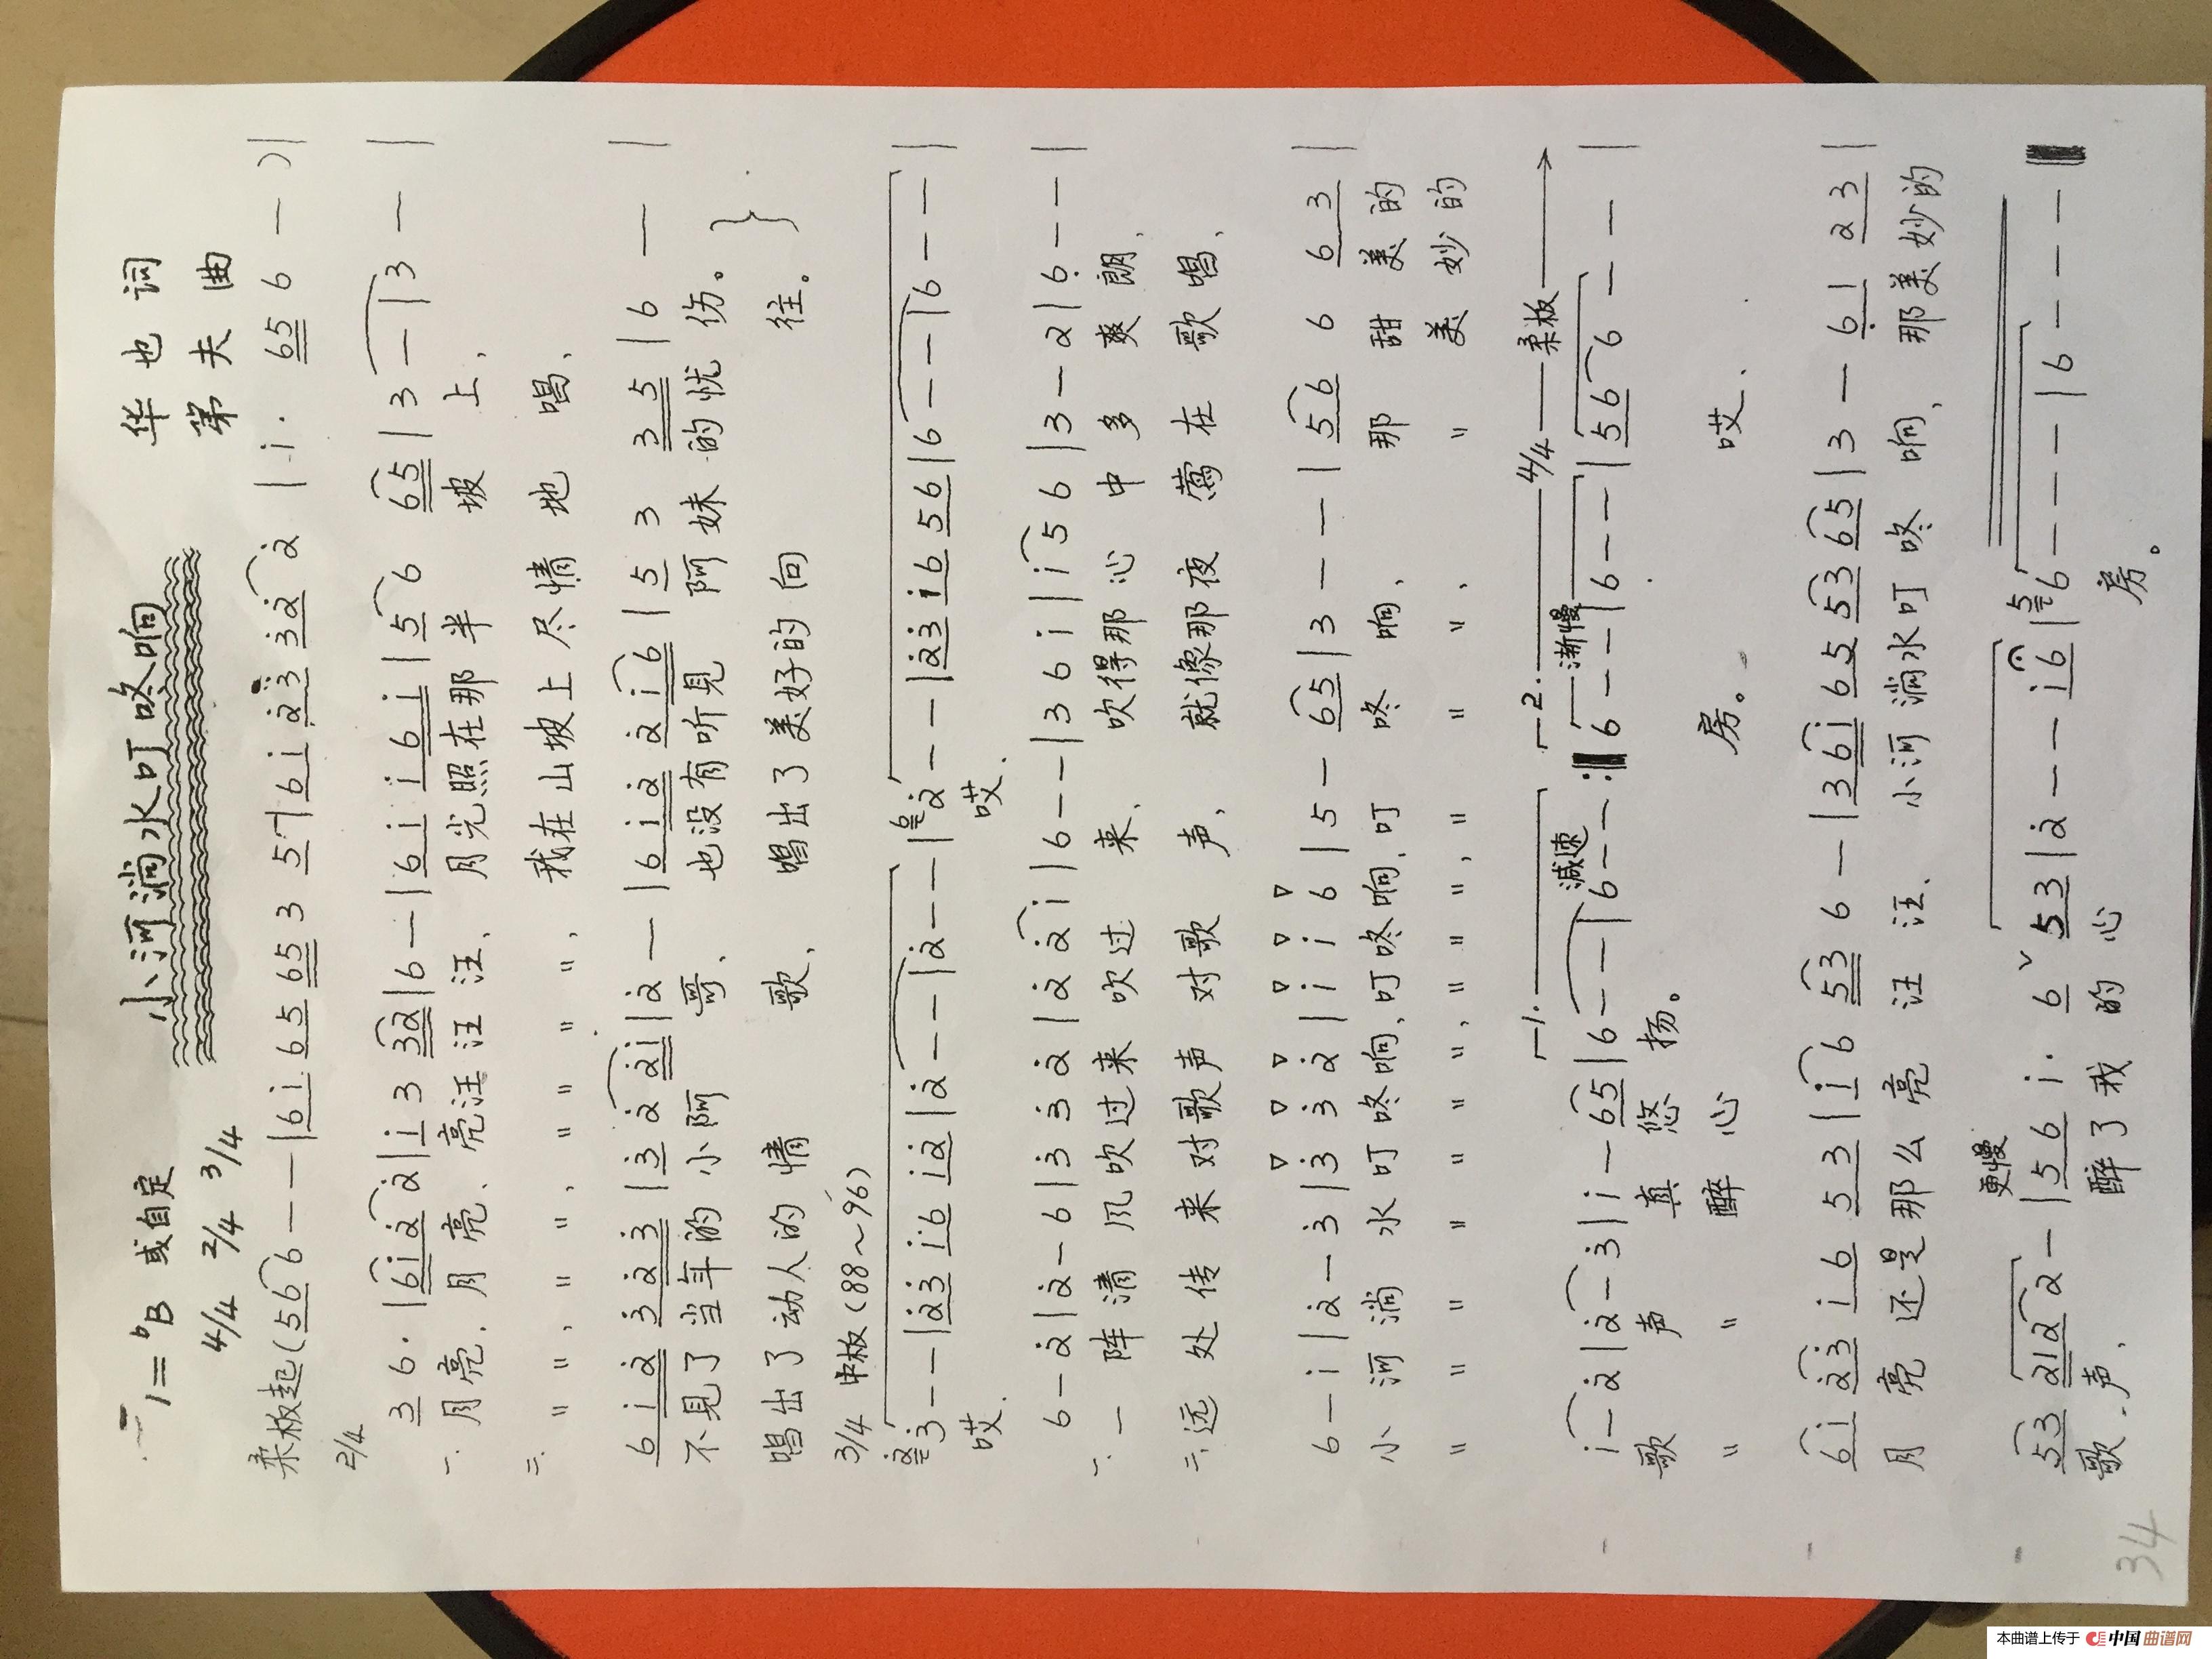 小河淌水叮咚响
1=♭B 或自定 华也 词
4/4 2/4 3/4 第夫 曲
柔板起(5 6 6 — — | 6 i 6 5 6 5 6 5 3 5 7 6 i 2 3 3 2 2 | i. 6 5 6 — )|
2/4
3 6. | 6 i 2 2 | i 3 3 2 | 6 — | 6 i i 6 i | 5 6 6 5 | 3 — | 3 — |
一.月亮,月亮、亮汪汪汪、月光照在那半坡上,
二. 〃 〃, 〃 〃, 〃 〃 〃 〃, 我在山坡上尽情地唱、
6 i 2 3 2 3 | 3 2 2 i | 2 — | 6 i 2 2 i 6 | 5 3 3 5 | 6 — |
不见了当年的小阿哥、也没有听见阿妹的忧伤。
唱出了动人的情歌、唱出了美好的向往。 }
3/4 中板(88~96)
3 — — | 2 3 i 6 i 2 | 2 — — | 2 — — | 2 — — | 2 3 i 6 5 6 | 6 — — | 6 — — |
哎. 哎.
6 — 2 | 2 — 6 | 3 3 2 | 2 2 i | 6 — — | 3 6 i | i 5 6 | 3 — 2 | 6 — — |
一、一阵清风吹过来吹过来、吹得那心中多爽朗、
二、远处传来对歌声对歌声,就像那夜莺在歌唱、
6 — i | 2 — 3 | 3 3 2 | i i 6 | 5 — 6 5 | 3 — — | 5 6 6 6 3 |
小河淌水叮咚响、叮咚响、叮咚响、那甜美的
〃 〃 〃 〃 〃 〃 〃, 〃 〃 〃, 〃 〃 〃, 〃 美妙的
1. 减速 2. 渐慢 4/4 柔板
i — 2 | 2 — 3 | i — 6 5 | 6 — — | 6 — — :| 6 — — | 6 — — | 5 6 6 — — |
歌声真悠扬。
〃 〃 醉心房。 哎、
6 i 2 3 i 6 5 3 | i 6 5 3 6 — | 3 6 i 6 5 5 3 6 5 | 3 — 6 1 2 3 |
月亮还是那么亮汪汪、小河淌水叮咚响、那美妙的
更慢
5 3 2 1 2 2 — | 5 6 i. 6 ∨ 5 3 | 2 — — i 6 | 6 — — — | 6 — — — ‖
歌声、醉了我的心房。
34
本曲谱上传于 中国曲谱网